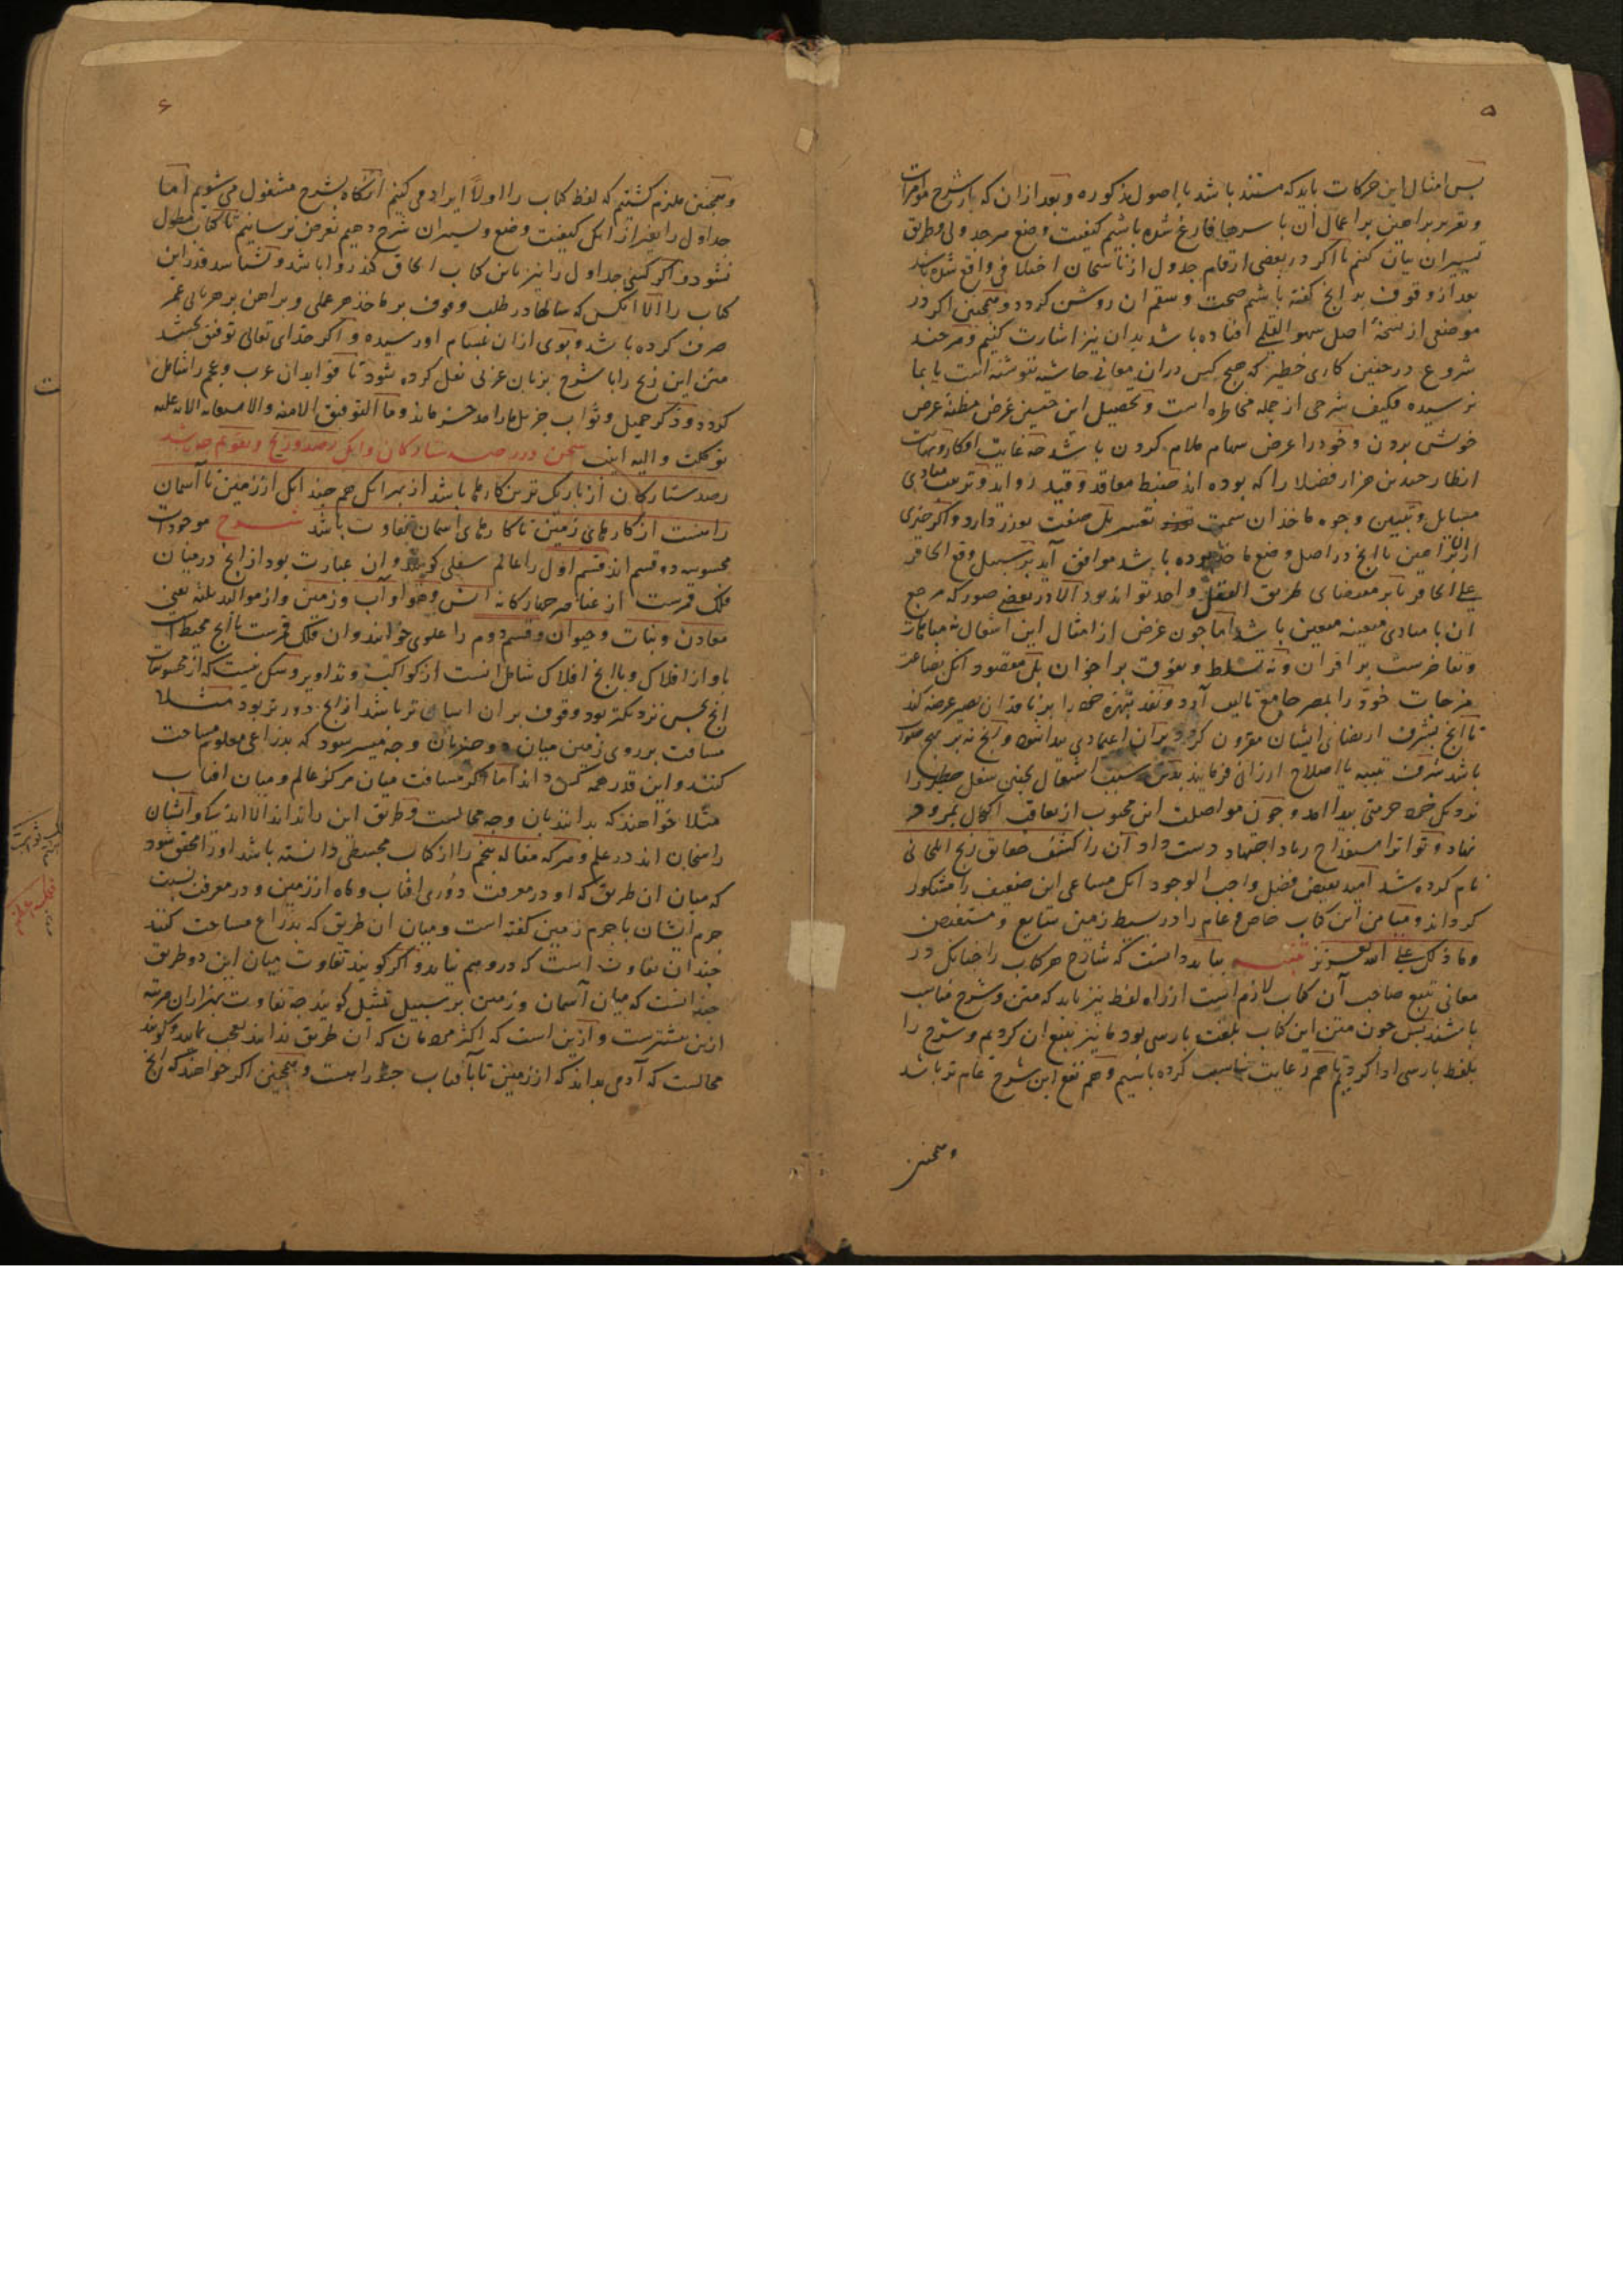 ۵
پس امثال این حرکات باید که مستند باشد با اصول مذکوره و بعد از ان که با شرح مؤامرات
و تقریر براهین بر اعمال آن باسرها فارغ شده باشیم کیفیت وضع هر جدولی و طریق
تسییران بیان کنم تا اکر در بعضی ارقام جدول از ناسخان اختلافی واقع شده باشد
بعد از وقوف بدانج کفته باشم صحت و سقم ان روشن کردد و همجنین اکر در
موضعی از نسخهٔ اصل سهو القلمی افتاده باشد بدان نیز اشارت کنیم و هر جند
شروع در جنین کاری خطیر که هیج کس در ان معانی حاشیه ننوشته است یا بما
نرسیده فکیف شرحی از جمله مخاطره است و تحصیل این جنین غرض مظنهٔ عرض
خوش بردن و خود را عرض سهام ملام کردن باشد جه غایت افکار و نهایت
انظار جندین هزار فضلا را که بوده اند ضبط معاقد و قید اوابد و ترتیب مبادی
مسایل و تبیین وجوه ماخذ ان سمت تعسر بل صفت تعذر دارد و اکر جیزی
از براهین با انج در اصل وضع ماخذ بوده باشد موافق آید بر سبیل وقع الحافر
علی الحافر بنابر مقتضای طریق العقل واحد تواند بود الا در بعضی صور که مرجع
ان با مبادی معینه معین باشد اما جون غرض از امثال این اشتغال نه مباهات
و تفاخرست بر اقران و نه تسلط و تفوق بر اخوان بل مقصود انک بضاعت
مزجات خود را بمصر جامع تالیف آرد و نقد بتهره خود را بر ناقدان بصیر عرضه کند
تا انج بشرف ارتضای ایشان مقرون کردد بر آن اعتمادی پیدا شود و انج نه بر نهج صواب
باشد شرف تنبیه یا اصلاح ارزانی فرمایند بدین سبب اشتغال بجنین شغل خطیر را
نزدیک خود حرمتی پیدا امد و جون مواصلت این محبوب از نقاب اکمال
نهاد و تواتر استقداح زناد اجتهاد دست داد آن را کشف حقایق زیج ایلخانی
نام کرده شد امید بفیض فضل واجب الوجود انک مساعی این ضعیف را مشکور
کرداند و میامن این کتاب خاص و عام را در بسیط زمین شایع و مستفیض
و ما ذلک علی الله بعزیز تنبیه بباید دانست که شارح هر کتاب را جنانک در
معانی تتبع صاحب آن کتاب لازم است از راه لفظ نیز باید که متن و شرح مناسب
باشند بس جون متن این کتاب بلغت بارسی بود ما نیز تتبع ان کردیم و شرح را
بلفظ بارسی ادا کردیم تا هم رعایت مناسبت کرده باشیم و هم نفع این شرح عام تر باشد
و همجنین
۶
و همجنین ملتزم کشتیم که لفظ کتاب را اولاً ایراد می کنیم انکاه بشرح مشغول می شویم اما
جداول را بغیر از انک کیفیت وضع و تسییران شرح دهیم تعرض نرسانیم تا کتاب مطول
نشود و اکر کسی جداول را نیز باین کتاب الحاق کند روا باشد و نشناسد قدر این
کتاب را الا انکس که سالها در طلب وقوف بر ماخذ هر عملی و براهین بر هر بابی عمر
صرف کرده باشد و بوی از ان بمشام او رسیده و اکر خدای تعالی توفیق بخشد
متن این زیج را با شرح بزبان عربی نقل کرده شود تا فواید ان عرب و عجم را شامل
کردد و ذکر جمیل و ثواب جزیل ما را مدخر ماند و ما التوفیق الا منه و الاستعانه الا به علیه
توکلت و الیه انیب سخن در رصد ستارکان و انک رصد و زیج و تقویم جه باشد
رصد ستارکان از باریک ترین کارها باشد از بهر انک هم جند انک از زمین تا آسمان
راهست از کارهای زمین تا کارهای اسمان تفاوت باشد شرح موجودات
محسوسه دو قسم اند قسم اول را عالم سفلی کویند و ان عبارت بود از انج در میان
فلک قمرست از عناصر جهارکانه اتش و هوا و آب و زمین و از موالید ثلثه یعنی
معادن و نبات و حیوان و قسم دوم را علوی خوانند و ان فلک قمرست با انج محیط است
باو از افلاک و با انج افلاک شامل انست از کواکب و تداویر و شکی نیست که از محسوسات
انج بحس نزدیکتر بود وقوف بر ان اسان تر باشد از انج دورتر بود مثلا
مسافت بر روی زمین میان دو جیز بآن وجه میسر شود که بذراعی معلوم مساحت
کنند و این قدر همه کس داند اما اکر مسافت میان مرکز عالم و میان افتاب
مثلا خواهند که بدانند بآن وجه محالست و طریق این دانند الا اند‌کی و ایشان
راسخان اند در علم و هر که مقاله پنجم را از کتاب مجسطی دانسته باشد او را محقق شود
که میان ان طریق که او در معرفت دوری افتاب و ماه از زمین و در معرفت نسبت
جرم ایشان با جرم زمین کفته است و میان ان طریق که بذراع مساحت کنند
جندان تفاوت است که در وهم نیاید و اکر کویند تفاوت میان این دو طریق
جندانست که میان آسمان و زمین بر سبیل تمثیل کویند جه تفاوت بهزاران مرتبه
ازین بیشترست و ازین است که اکثر مردمان که ان طریق ندانند تعجب نمایند و کویند
محالست که آدمی بداند که از زمین تا بآفتاب جند راهست و همجنین اکر خواهند که انج